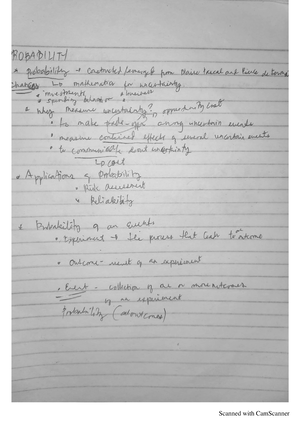 ROBABILITY
• Probability → constructed from Blaise Pascal and Pierre de Fermat
chances ↳ mathematics for uncertainty
• investments • business
• spending behavior
Why measure uncertainty? opportunity cost
• to make trade-offs among uncertain events
• measure combined effects of several uncertain events
• to communicate about uncertainty
↳ cost
• Applications of Probability
• Risk Assessment
• Reliability
Probability of an Events
• Experiment → the process that leads to an outcome
• Outcome - result of an experiment
• Event - collection of one or more outcomes
of an experiment
Probability (outcomes)
Scanned with CamScanner